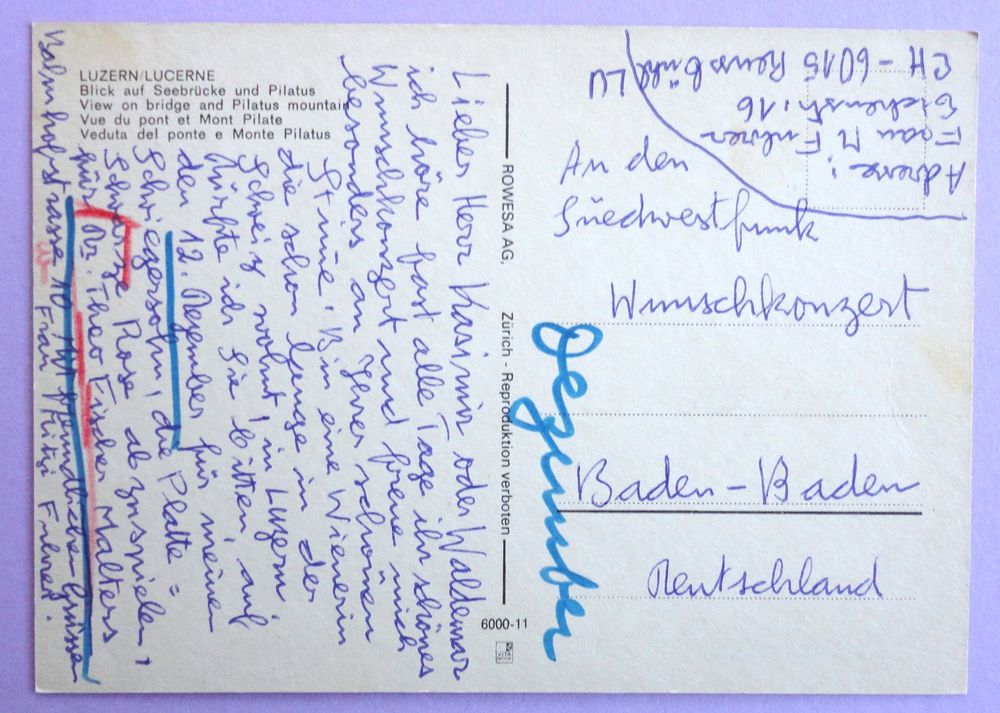 LUZERN/LUCERNE
Blick auf Seebrücke und Pilatus
View on bridge and Pilatus mountain
Vue du pont et Mont Pilate
Veduta del ponte e Monte Pilatus
Lieber Herr Kasimir oder Waldemar
ich höre fast alle Tage ihr schönes
Wunschkonzert und freue mich
besonders an Ihrer schönen
Stimme. Bin eine Wienerin
die schon lange in der
Schweiz wohnt, in Luzern.
Dürfte ich Sie bitten, auf
den 12. Dezember für meinen
Schwiegersohn, die Platte =
Schwarze Rose abzuspielen,
für Dr. Theo Fischer Malters
Bahnhofstrasse 10 freundliche Grüsse
Frau Mitzi Fuhrer.
ROWESA AG, Zürich - Reproduktion verboten
6000-11
Dezember
Adresse:
Frau M. Fuhrer
Eichenstr. 16
CH - 6015 Reussbühl LU
An den
Südwestfunk
Wunschkonzert
Baden-Baden
Deutschland